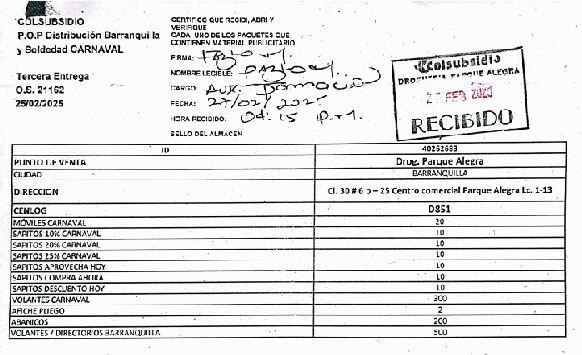 COLSUBSIDIO
P.O.P Distribución Barranquilla
y Soldedad CARNAVAL
Tercera Entrega
O.S. 21162
25/02/2025
CERTIFICO QUE RECIBI, ABRI Y
VERIFIQUE
CADA UNO DE LOS PAQUETES QUE
CONTIENEN MATERIAL PUBLICITARIO
FIRMA:
NOMBRE LEGIBLE:
CARGO: Aux. Farmacia
FECHA: 27/02/2025
HORA RECIBIDO: 04:15 P.M.
SELLO DEL ALMACEN
colsubsidio
DROGUERIA PARQUE ALEGRA
27 FEB 2025
RECIBIDO
ID 40252683
PUNTO DE VENTA Drog. Parque Alegra
CIUDAD BARRANQUILLA
DIRECCION Cl. 30 # 6 b – 25 Centro comercial Parque Alegra Lc. 1-13
CENLOG D851
MÓVILES CARNAVAL 20
SAPITOS 10% CARNAVAL 10
SAPITOS 20% CARNAVAL 10
SAPITOS 25% CARNAVAL 10
SAPITOS APROVECHA HOY 10
SAPITOS COMPRA AHORA 10
SAPITOS DESCUENTO HOY 10
VOLANTES CARNAVAL 300
AFICHE PLIEGO 2
ABANICOS 200
VOLANTES / DIRECTORIOS BARRANQUILLA 500